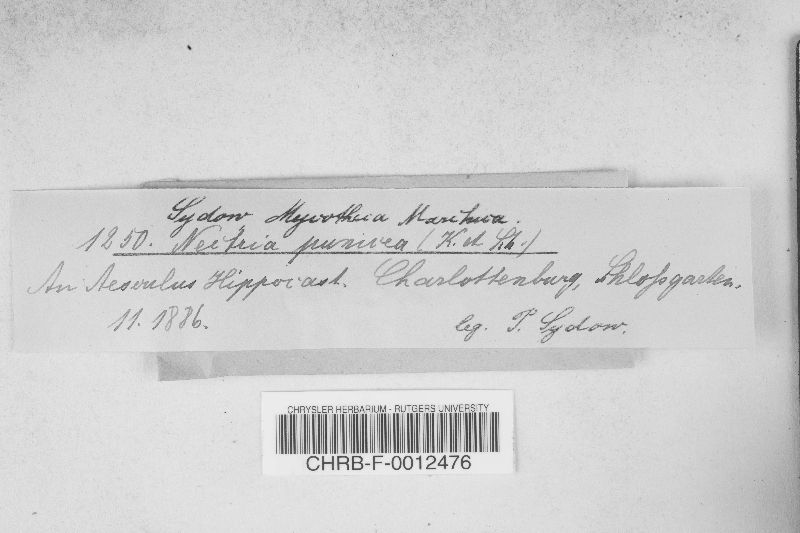 Sydow Mycotheca Marchica.
1250. Nectria punicea (K. et Sch.)
An Aesculus Hippocast. Charlottenburg, Schloßgarten.
11. 1886.
leg. P. Sydow.
CHRYSLER HERBARIUM - RUTGERS UNIVERSITY
CHRB-F-0012476